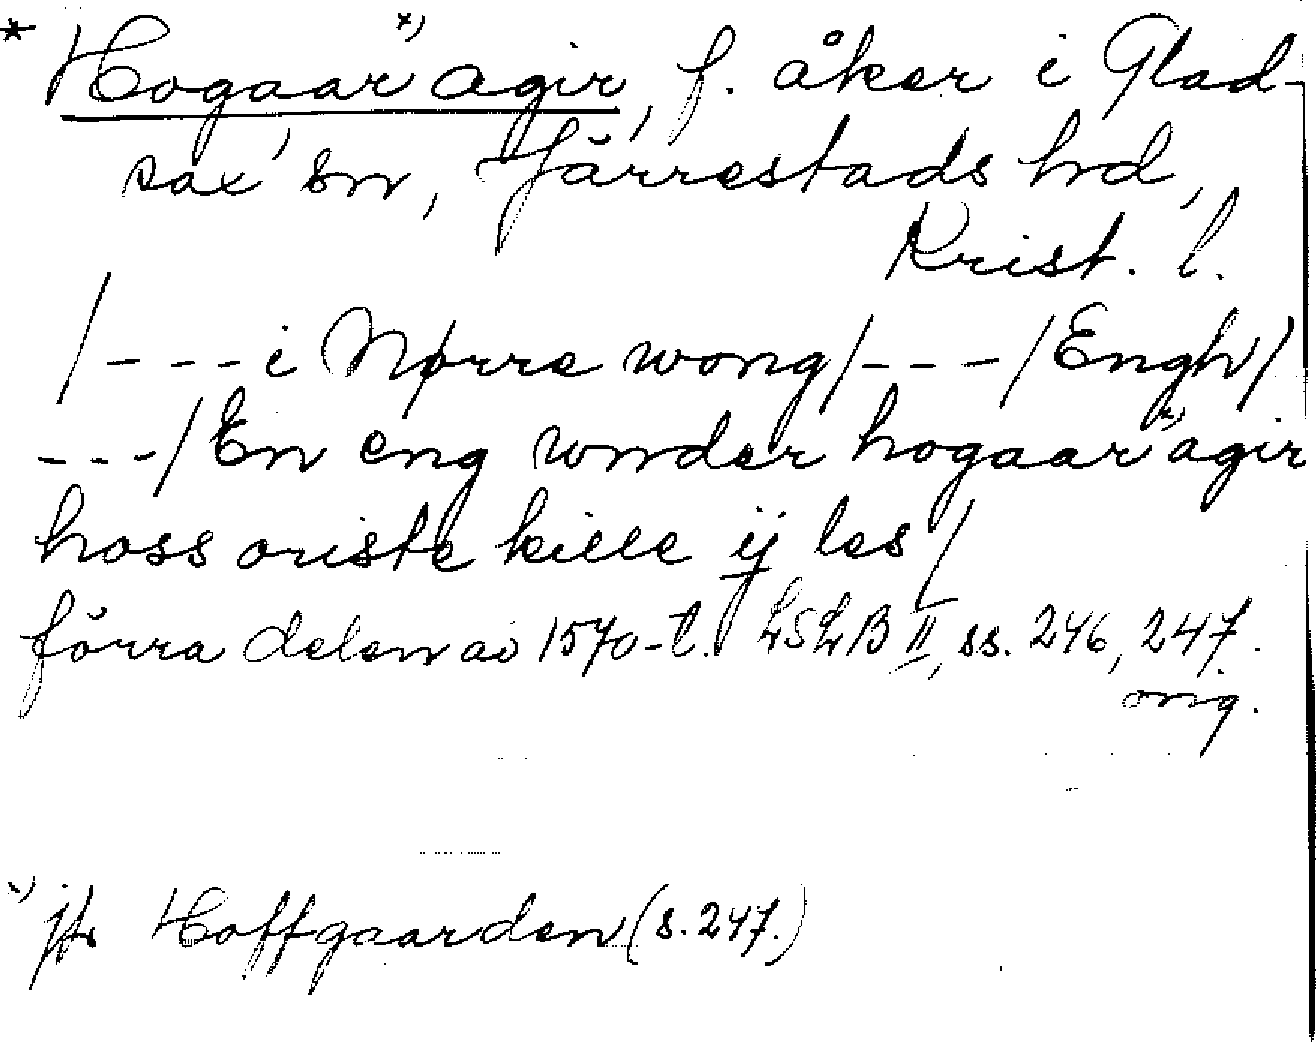 * Hogaar x) agir, f. åker i Glad-
sax sn, Järrestads hd,
Krist. l.
/---i Nørre wong/---/Engh/
---/En eng wnder hogaar x) agir
hoss oriste kielle ij les/
förra delen av 1570-t. LSLB II, ss. 246, 247.
orig.
x) jfr Hoffgaarden (s. 247.)